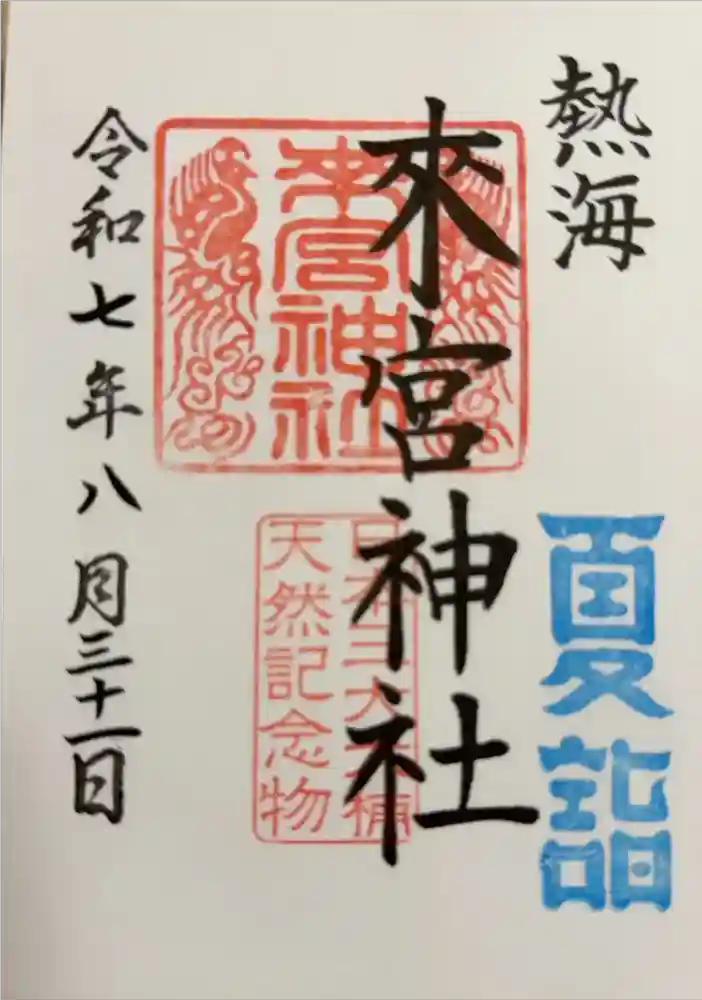 熱海
夏詣
來宮神社
来宮神社
日本三大 楠
天然記念物
令和七年八月三十一日